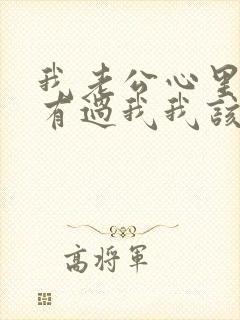 我老公心里
有过我我该
高将军